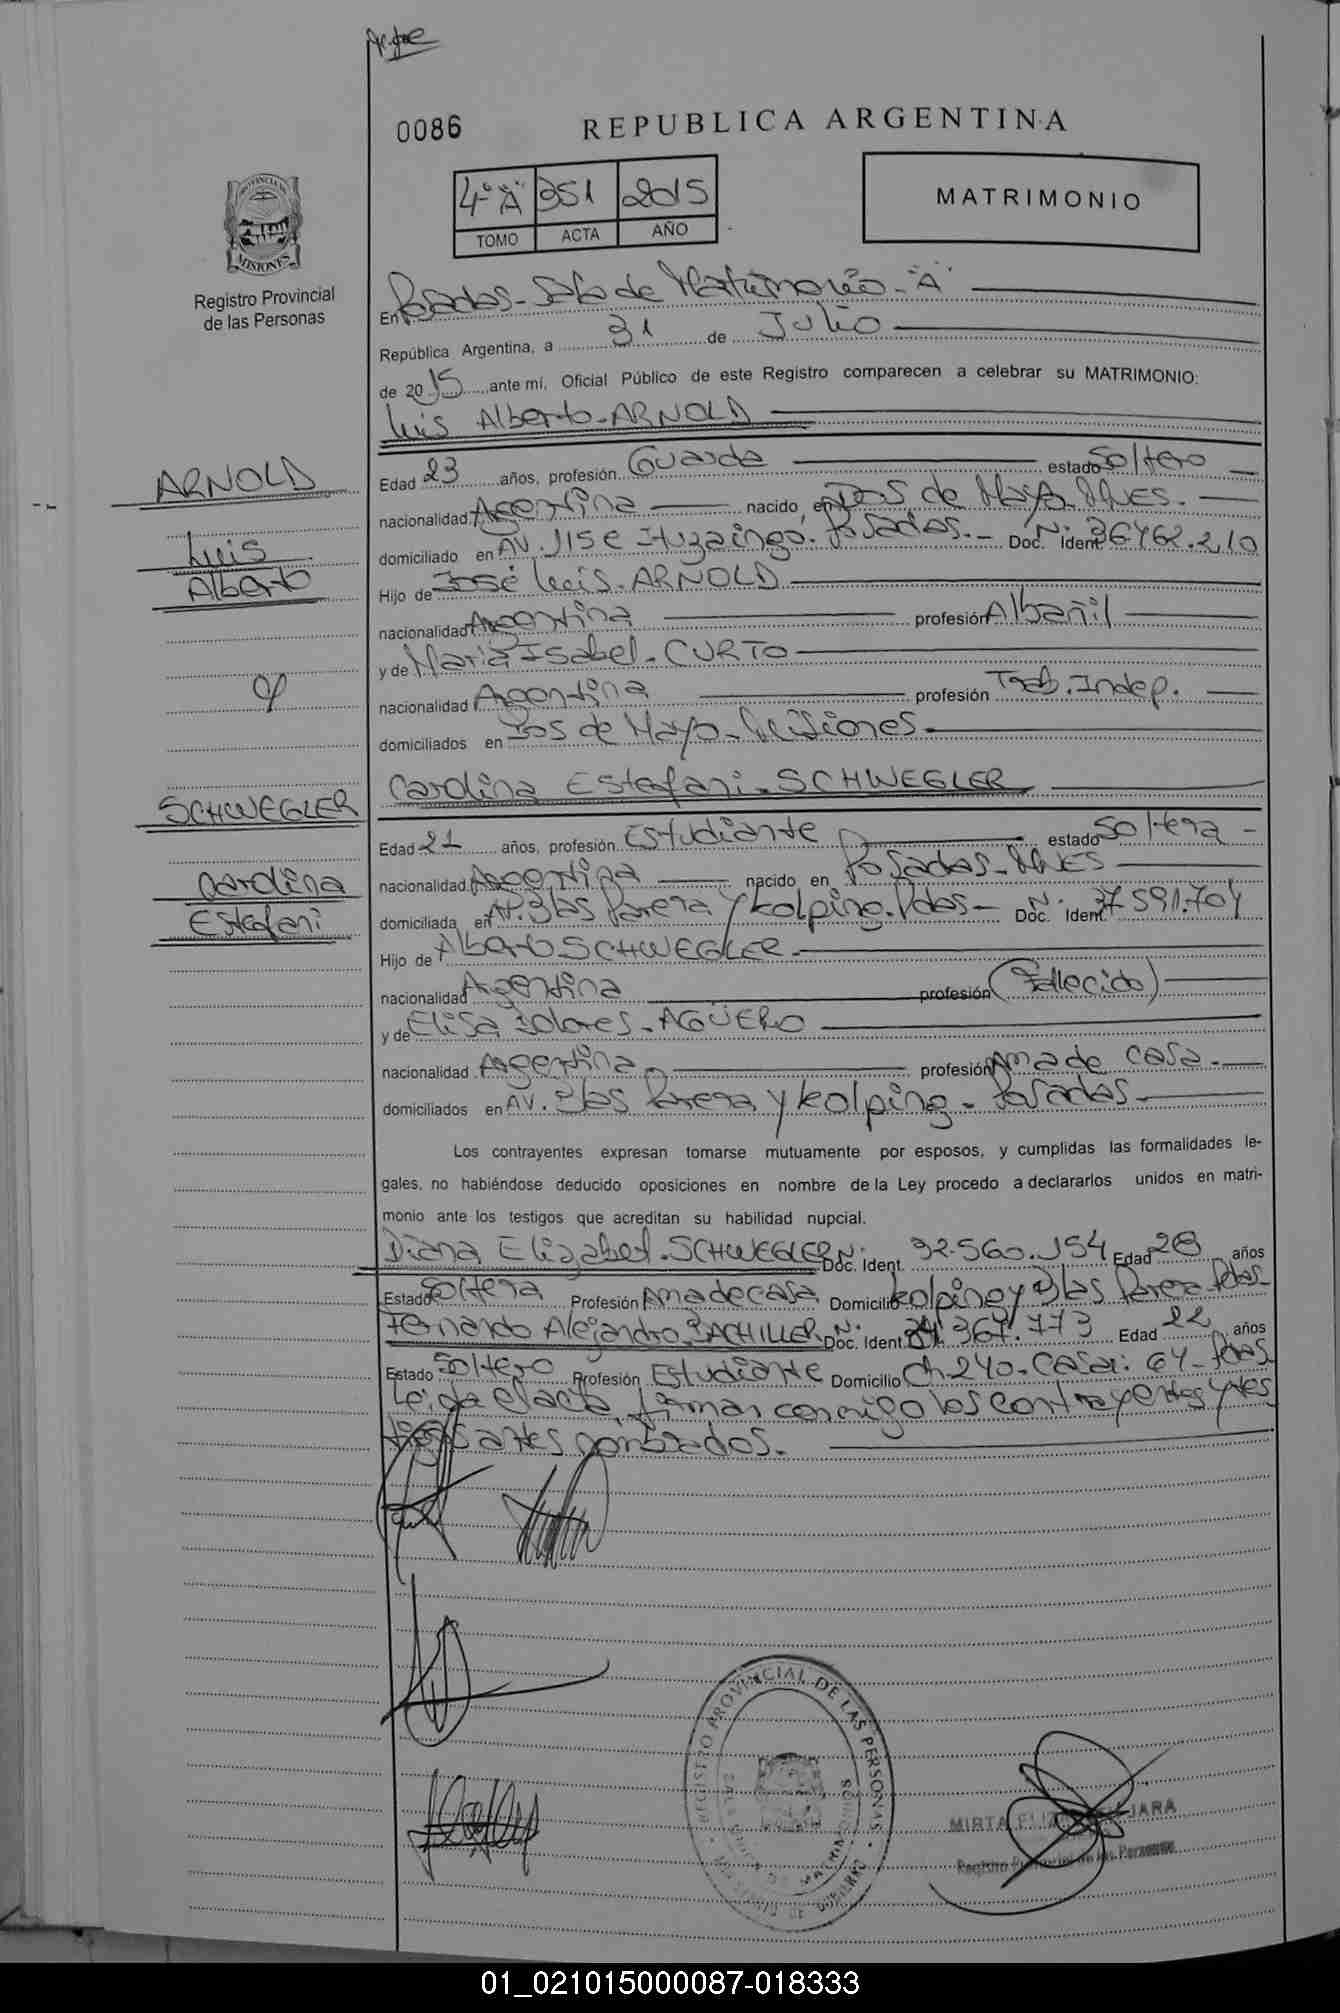 0086
REPUBLICA ARGENTINA
4º "A" 351 2015
TOMO ACTA AÑO
MATRIMONIO
MISIONES
Registro Provincial
de las Personas
En Posadas - Sala de Matrimonio - "A"
República Argentina, a 31 de Julio
de 2015, ante mí, Oficial Público de este Registro comparecen a celebrar su MATRIMONIO:
Luis Alberto - ARNOLD
ARNOLD
Luis
Alberto
y
SCHWEGLER
Carolina
Estefani
Edad 23 años, profesión Guarda estado Soltero
nacionalidad Argentina nacido en Dos de Mayo - Mnes.
domiciliado en AV. 115 e Ituzaingo. Posadas. - Doc. Ident. Nº 36462.210
Hijo de José Luis - ARNOLD
nacionalidad Argentina profesión Albañil
y de Maria Isabel - CURTO
nacionalidad Argentina profesión Trab. Indep.
domiciliados en Dos de Mayo - Misiones -
Carolina Estefani - SCHWEGLER
Edad 21 años, profesión Estudiante estado Soltera -
nacionalidad Argentina nacido en Posadas - Mnes
domiciliada en AV. Blas Parera y Kolping. Pdas - Doc. Ident. Nº 37591.704
Hijo de Alberto SCHWEGLER -
nacionalidad Argentina profesión (Fallecido)
y de Elisa Dolores - AGÜERO
nacionalidad Argentina - profesión Ama de casa -
domiciliados en AV. Blas Parera y Kolping - Posadas -
Los contrayentes expresan tomarse mutuamente por esposos, y cumplidas las formalidades le-
gales, no habiéndose deducido oposiciones en nombre de la Ley procedo a declararlos unidos en matri-
monio ante los testigos que acreditan su habilidad nupcial.
Diana Elizabet - SCHWEGLER Doc. Ident. Nº 32.560.154 Edad 28 años
Estado Soltera Profesión Ama de casa Domicilio Kolping y Blas Parera Pdas -
Fernando Alejandro BACHILLER Doc. Ident. Nº 367.773 Edad 22 años
Estado Soltero Profesión Estudiante Domicilio Ch 240 - Casa: 64 - Pdas
Leida el acta, firman conmigo los contrayentes y tes
tigos antes nombrados. -
REGISTRO PROVINCIAL DE LAS PERSONAS
MIRTA
Registro Provincial de las Personas
01_021015000087-018333